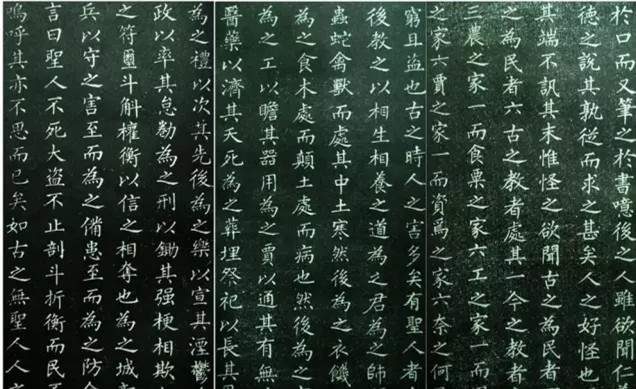 於口而又筆之於書噫後之人雖欲聞仁
德之說其孰從而求之甚矣人之好怪也
其端不訊其末惟怪之欲聞古之為民者
之為民者六古之教者處其一今之教者
三農之家一而食粟之家六工之家一而
之家六賈之家一而資焉之家六奈之何
窮且盜也古之時人之害多矣有聖人者
後教之以相生相養之道為之君為之師
蟲蛇禽獸而處其中土寒然後為之衣饑
為之食木處而顛土處而病也然後為之
為之工以贍其器用為之賈以通其有無
醫藥以濟其夭死為之葬埋祭祀以長其
為之禮以次其先後為之樂以宣其湮鬱
政以率其怠勌為之刑以鋤其强梗相欺
之符璽斗斛權衡以信之相奪也為之城
兵以守之害至而為之備患至而為之防
言曰聖人不死大盜不止剖斗折衡而民
嗚呼其亦不思而已矣如古之無聖人人